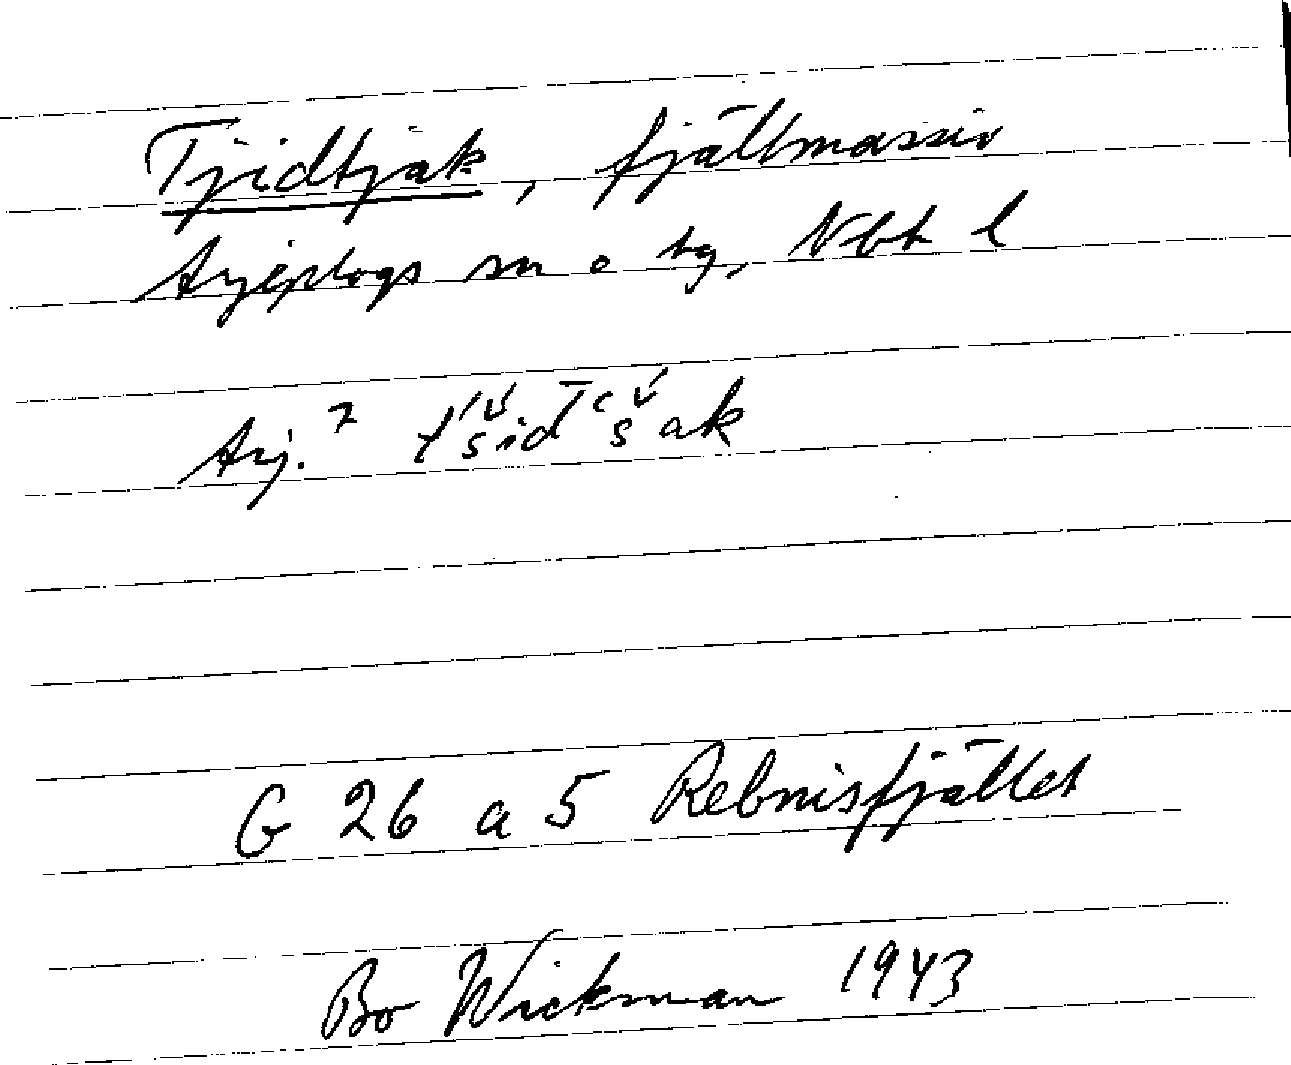 Tjidtjak, fjällmassiv
Arjeplogs sn o tg, Nbt l
Arj. 7 t́šidT‘šak
G 26 a 5 Rebnisfjället
Bo Wickman 1943